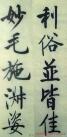 利俗並皆佳
妙毛施淑姿